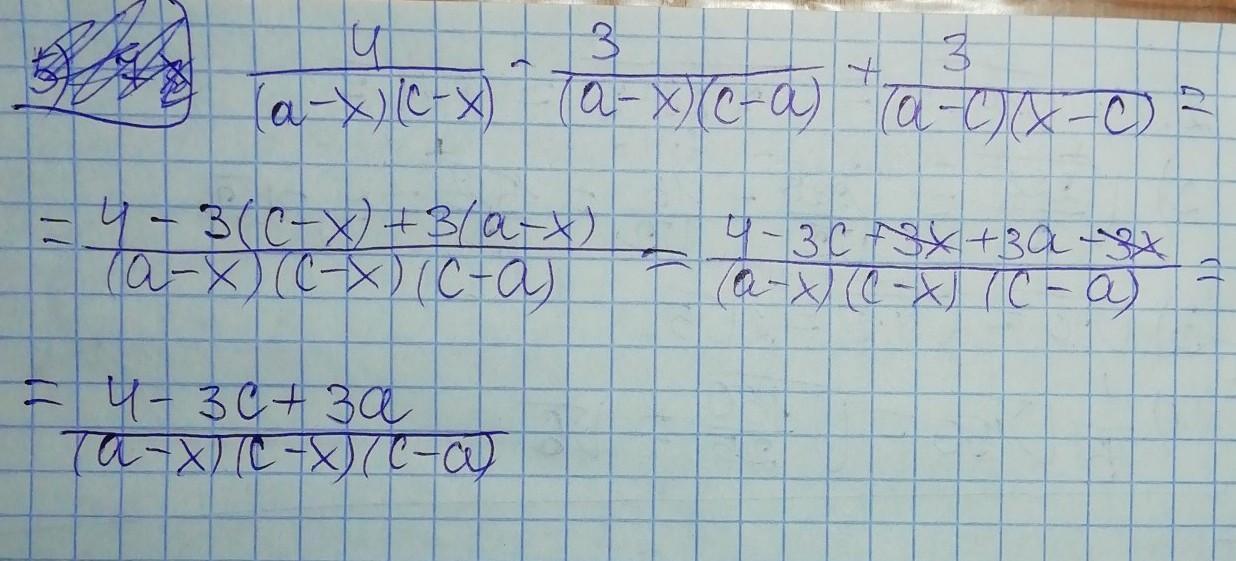 4/((a-x)(c-x)) - 3/((a-x)(c-a)) + 3/((a-c)(x-c)) =
= (4-3(c-x)+3(a-x))/((a-x)(c-x)(c-a)) = (4-3c+3x+3a-3x)/((a-x)(c-x)(c-a)) =
= (4-3c+3a)/((a-x)(c-x)(c-a))